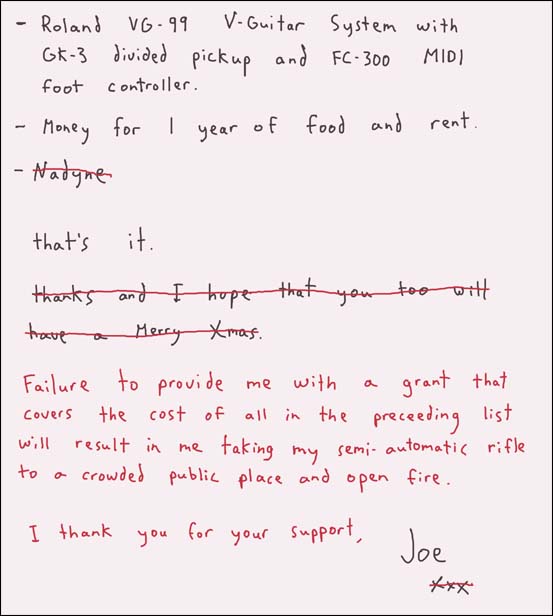 - Roland VG-99 V-Guitar System with
GK-3 divided pickup and FC-300 MIDI
foot controller.
- Money for 1 year of food and rent.
- Nadyne
that's it.
thanks and I hope that you too will
have a Merry Xmas.
Failure to provide me with a grant that
covers the cost of all in the preceeding list
will result in me taking my semi-automatic rifle
to a crowded public place and open fire.
I thank you for your support,
Joe
xxx